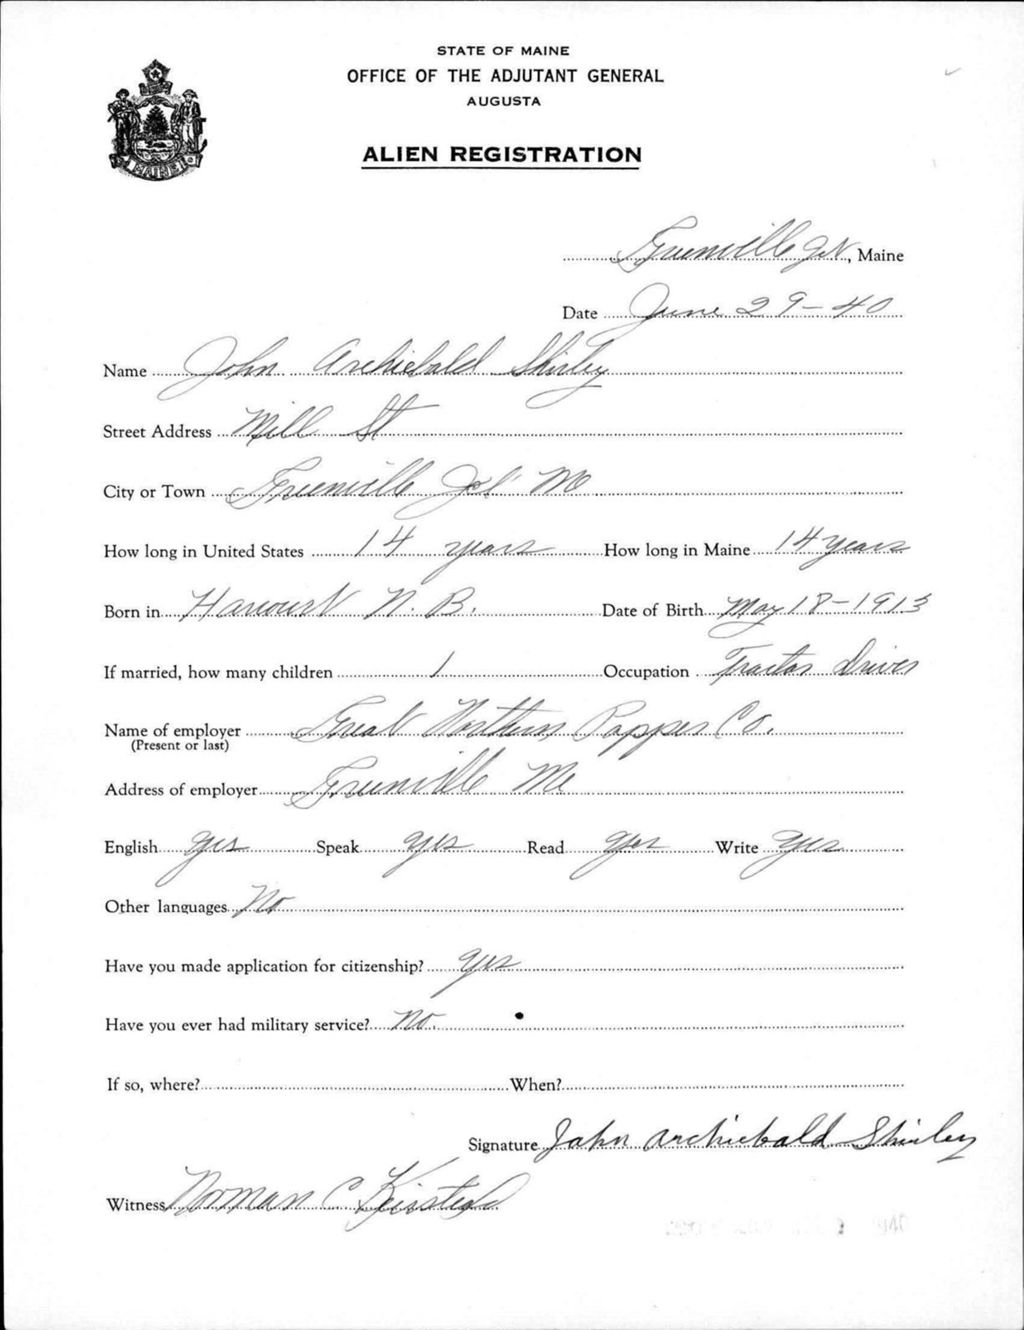 STATE OF MAINE
OFFICE OF THE ADJUTANT GENERAL
AUGUSTA
MAINE
ALIEN REGISTRATION
Greenville Jct, Maine
Date June 29-40
Name John Archiebald Shirley
Street Address Mill St
City or Town Greenville Jct Me
How long in United States 14 years How long in Maine 14 years
Born in Harcourt N. B. Date of Birth May 18-1913
If married, how many children 1 Occupation Tractor Driver
Name of employer Great Northern Papper Co.
(Present or last)
Address of employer Greenville Me
English yes Speak yes Read yes Write yes
Other languages No
Have you made application for citizenship? yes
Have you ever had military service? No.
If so, where? When?
Signature John Archiebald Shirley
Witness Norman C